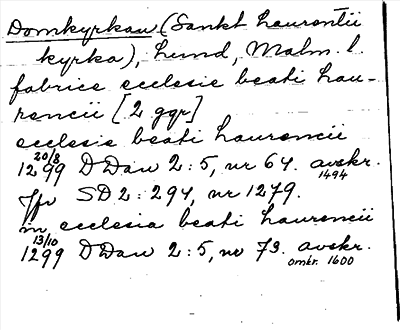 Domkyrkan (Sankt Laurentii
kyrka), Lund, Malm. l.
fabrice ecclesie beati Lau-
rencii [2 ggr]
ecclesie beati Laurencii
20/8 1299 DDan 2:5, nr 64. avskr. 1494
Jfr SD 2: 294, nr 1279.
in ecclesia beati Laurencii
13/10 1299 DDan 2:5, nr 73. avskr. omkr. 1600